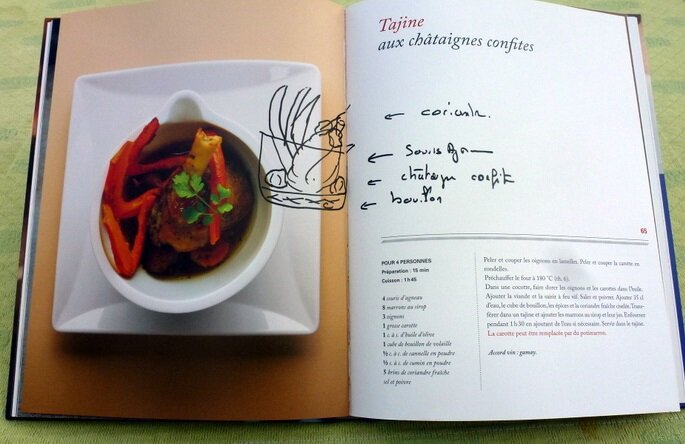 Tajine
aux châtaignes confites
← coriandr.
← Souris Agn
← châtaign confit
← bouillon
65
POUR 4 PERSONNES
Préparation : 15 min
Cuisson : 1 h 45
4 souris d'agneau
8 marrons au sirop
3 oignons
1 grosse carotte
1 c. à c. d'huile d'olive
1 cube de bouillon de volaille
½ c. à c. de cannelle en poudre
½ c. à c. de cumin en poudre
5 brins de coriandre fraîche
sel et poivre
Peler et couper les oignons en lamelles. Peler et couper la carotte en
rondelles.
Préchauffer le four à 180 °C (th. 6).
Dans une cocotte, faire dorer les oignons et les carottes dans l'huile.
Ajouter la viande et la saisir à feu vif. Saler et poivrer. Ajouter 15 cl
d'eau, le cube de bouillon, les épices et la coriandre fraîche ciselée. Trans-
férer dans un tajine et ajouter les marrons au sirop et leur jus. Enfourner
pendant 1 h 30 en ajoutant de l'eau si nécessaire. Servir dans le tajine.
La carotte peut être remplacée par du potimarron.
Accord vin : gamay.